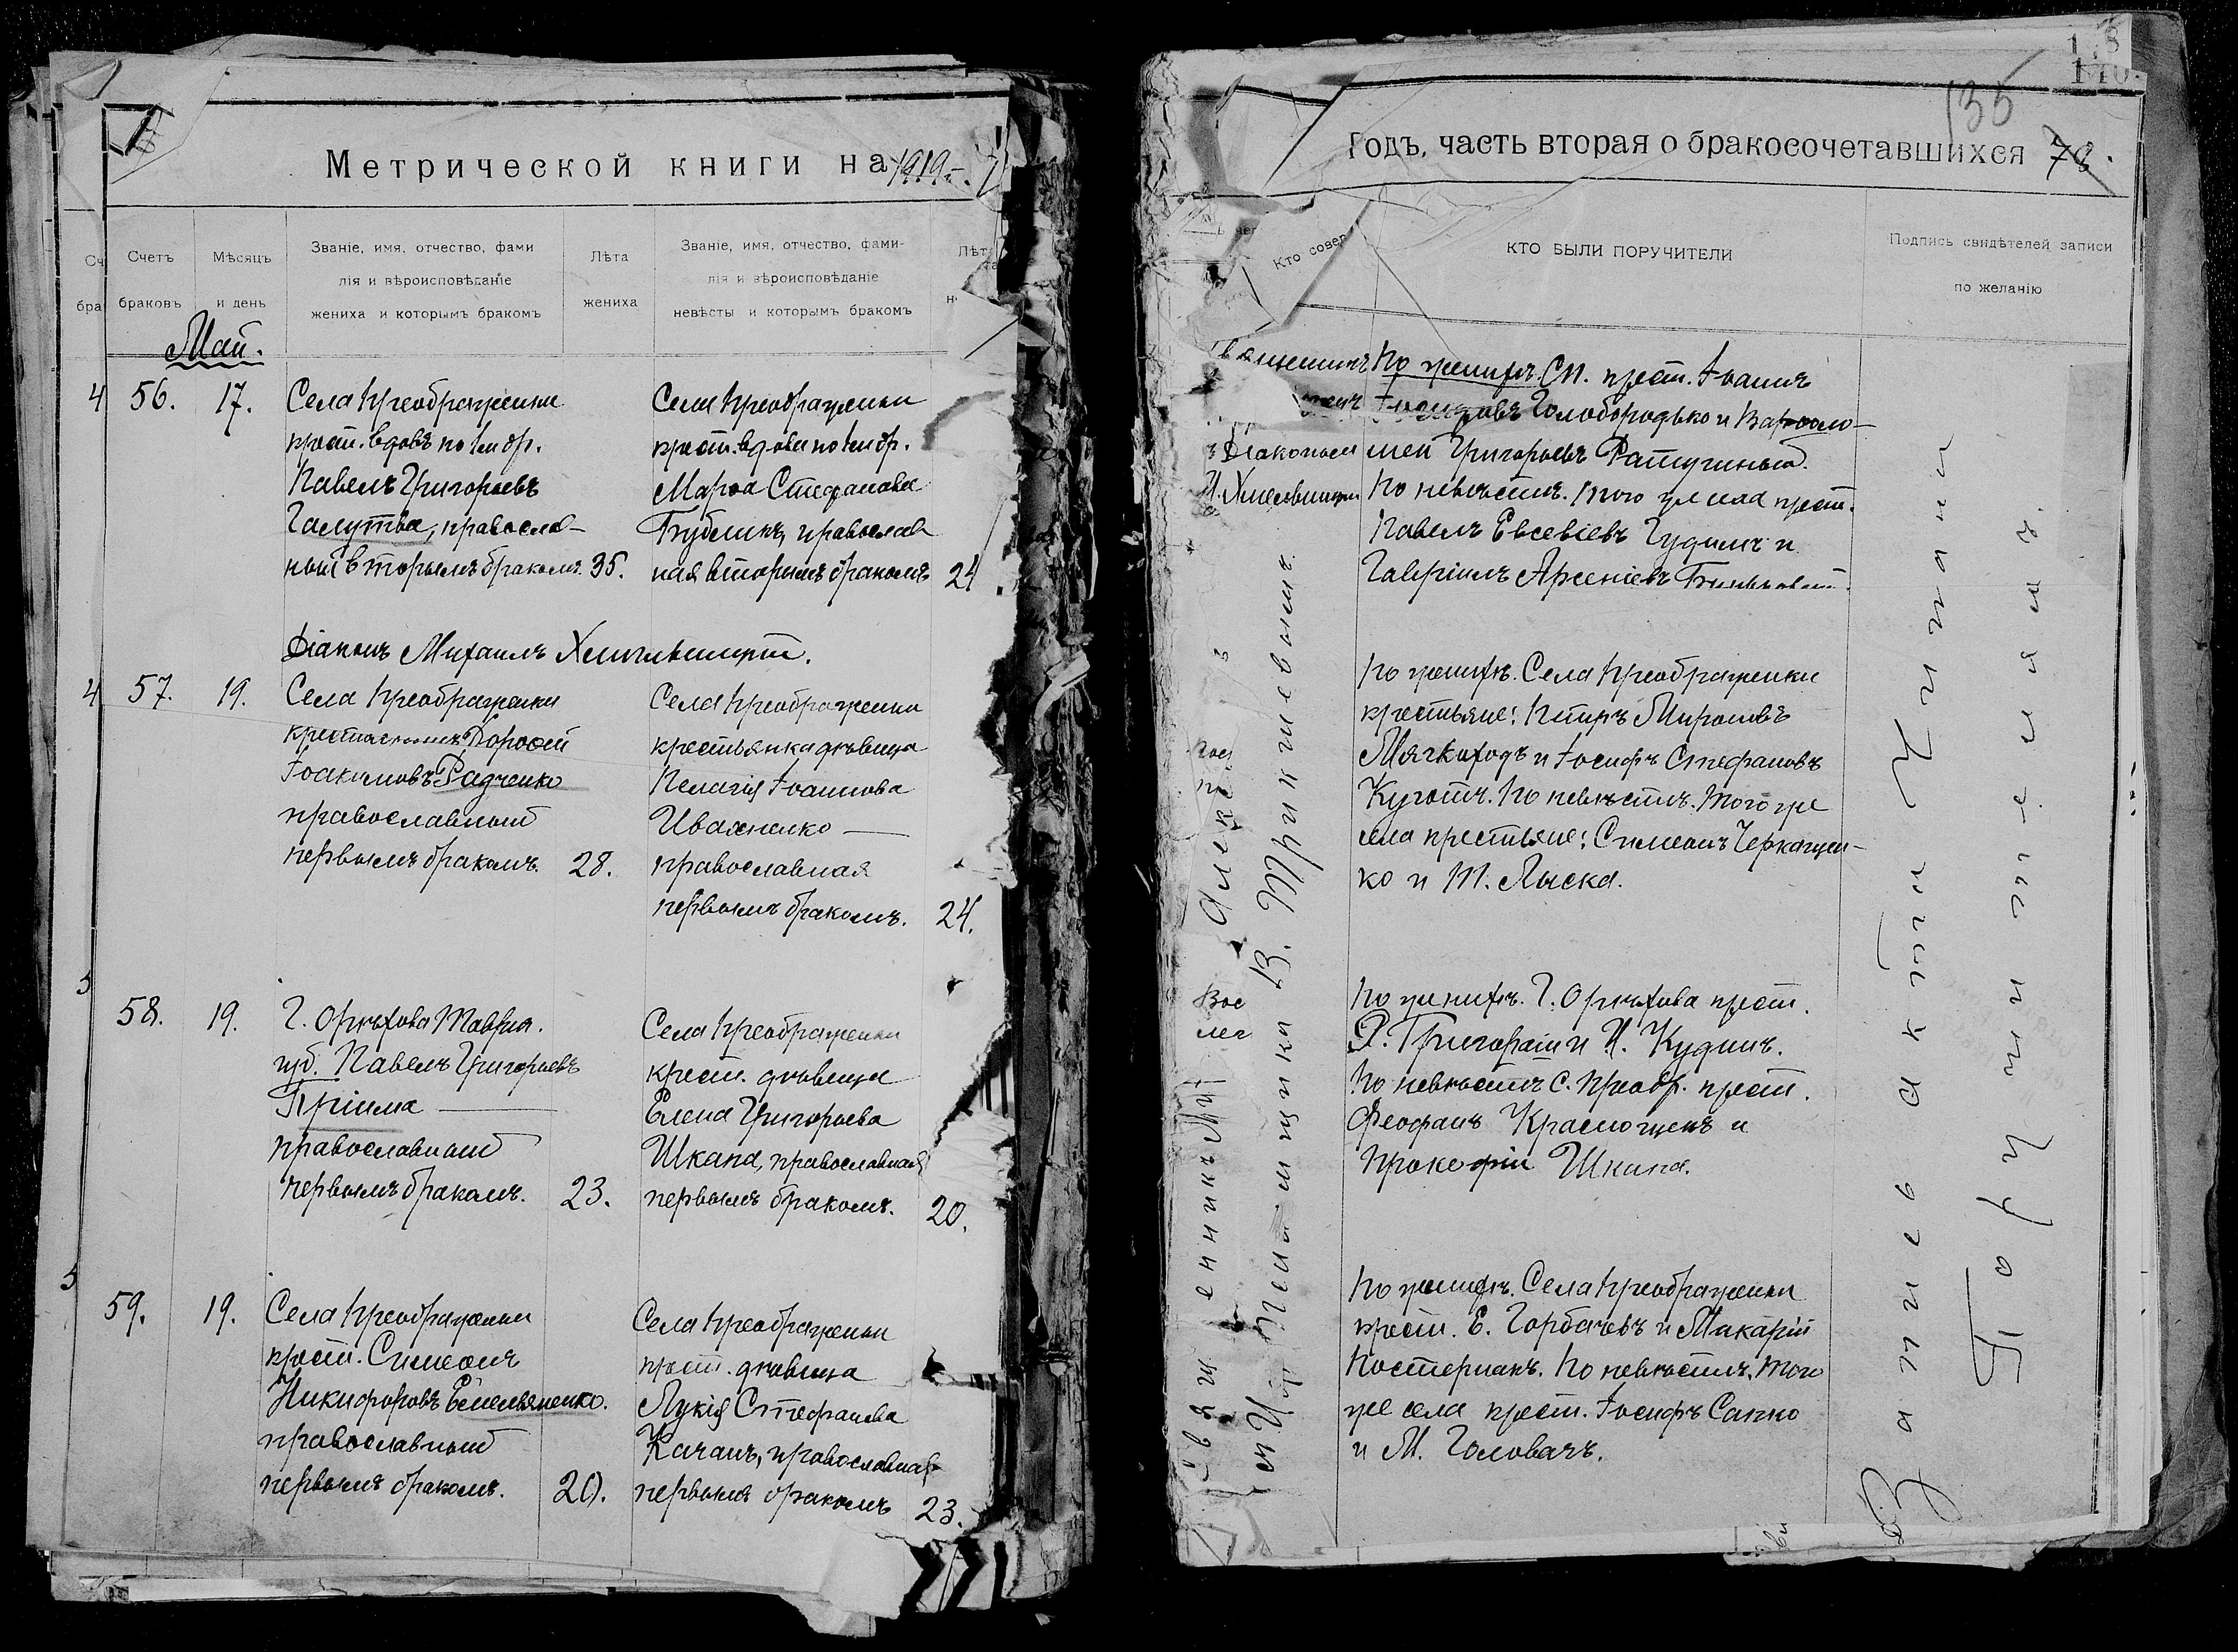 Метрической книги на 1919 г.
Счетъ
браковъ
Мѣсяцъ
и день
Званіе, имя, отчество, фами
лія и вѣроисповѣданіе
жениха и которымъ бракомъ
Лѣта
жениха
Званіе, имя, отчество, фами-
лія и вѣроисповѣданіе
невѣсты и которымъ бракомъ
Май.
56.
17.
Села Преображенки
крест. вдовъ по 1 мъ бр.
Павелъ Григорьевъ
Галутва, православ-
ный вторымъ бракомъ.
35.
Села Преображенки
крест. вдова по 1 мъ бр.
Марѳа Стефанова
Бубликъ, православ
ная вторымъ бракомъ
24
Діаконъ Михаилъ
57.
19.
Села Преображенки
крестьянинъ Дороѳей
Іоакимовъ Радченко
православный
первымъ бракомъ.
28.
Села Преображенки
крестьянка дѣвица
Пелагія Іоаннова
Иваненко
православная
первымъ бракомъ.
24.
58.
19.
Г. Орѣхова Таврич.
губ. Павелъ Григорьевъ
Пріима
православный
первымъ бракомъ.
23.
Села Преображенки
крест. дѣвица
Елена Григорьева
Шкапа, православная
первымъ бракомъ.
20.
59.
19.
Села Преображенки
крест. Симеонъ
Никифоровъ Емельяненко.
православный
первымъ бракомъ.
20.
Села Преображенки
крест. дѣвица
Лукія Стефанова
Качанъ, православная
первымъ бракомъ
23.
135
Годъ, часть вторая о бракосочетавшихся
Кто совер
КТО БЫЛИ ПОРУЧИТЕЛИ
Подпись свидѣтелей записи
по желанію
По женихѣ. Сп. крест. Іоаннъ
Голобородько и Варѳоло-
Діакономъ
мей Григорьевъ Ратушный.
По невѣстѣ. того же села крест.
Павелъ Евсевіевъ Гудимъ и
Гавріилъ Арсеніевъ
По женихѣ. Села Преображенки
крестьяне: Петръ Мироновъ
Мягкоходъ и Іосифъ Стефановъ
По невѣстѣ. того же
села крестьяне: Симеонъ Черкащен-
ко и Т. Лыска.
По женихѣ. Г. Орѣхова крест.
Ѳ. Григораш и И. Кудинъ.
По невѣстѣ с. Преобр. крест.
Феофанъ и
Прокофій Шкапа.
По женихѣ. Села Преображенки
крест. Е. Горбачевъ и Макарій
Костерманъ. По невѣстѣ. того
же села крест. Іосифъ Сапко
и М. Головачъ.
Священникъ
В. Триклевымъ.
Записъ актъ читали
Поручители.